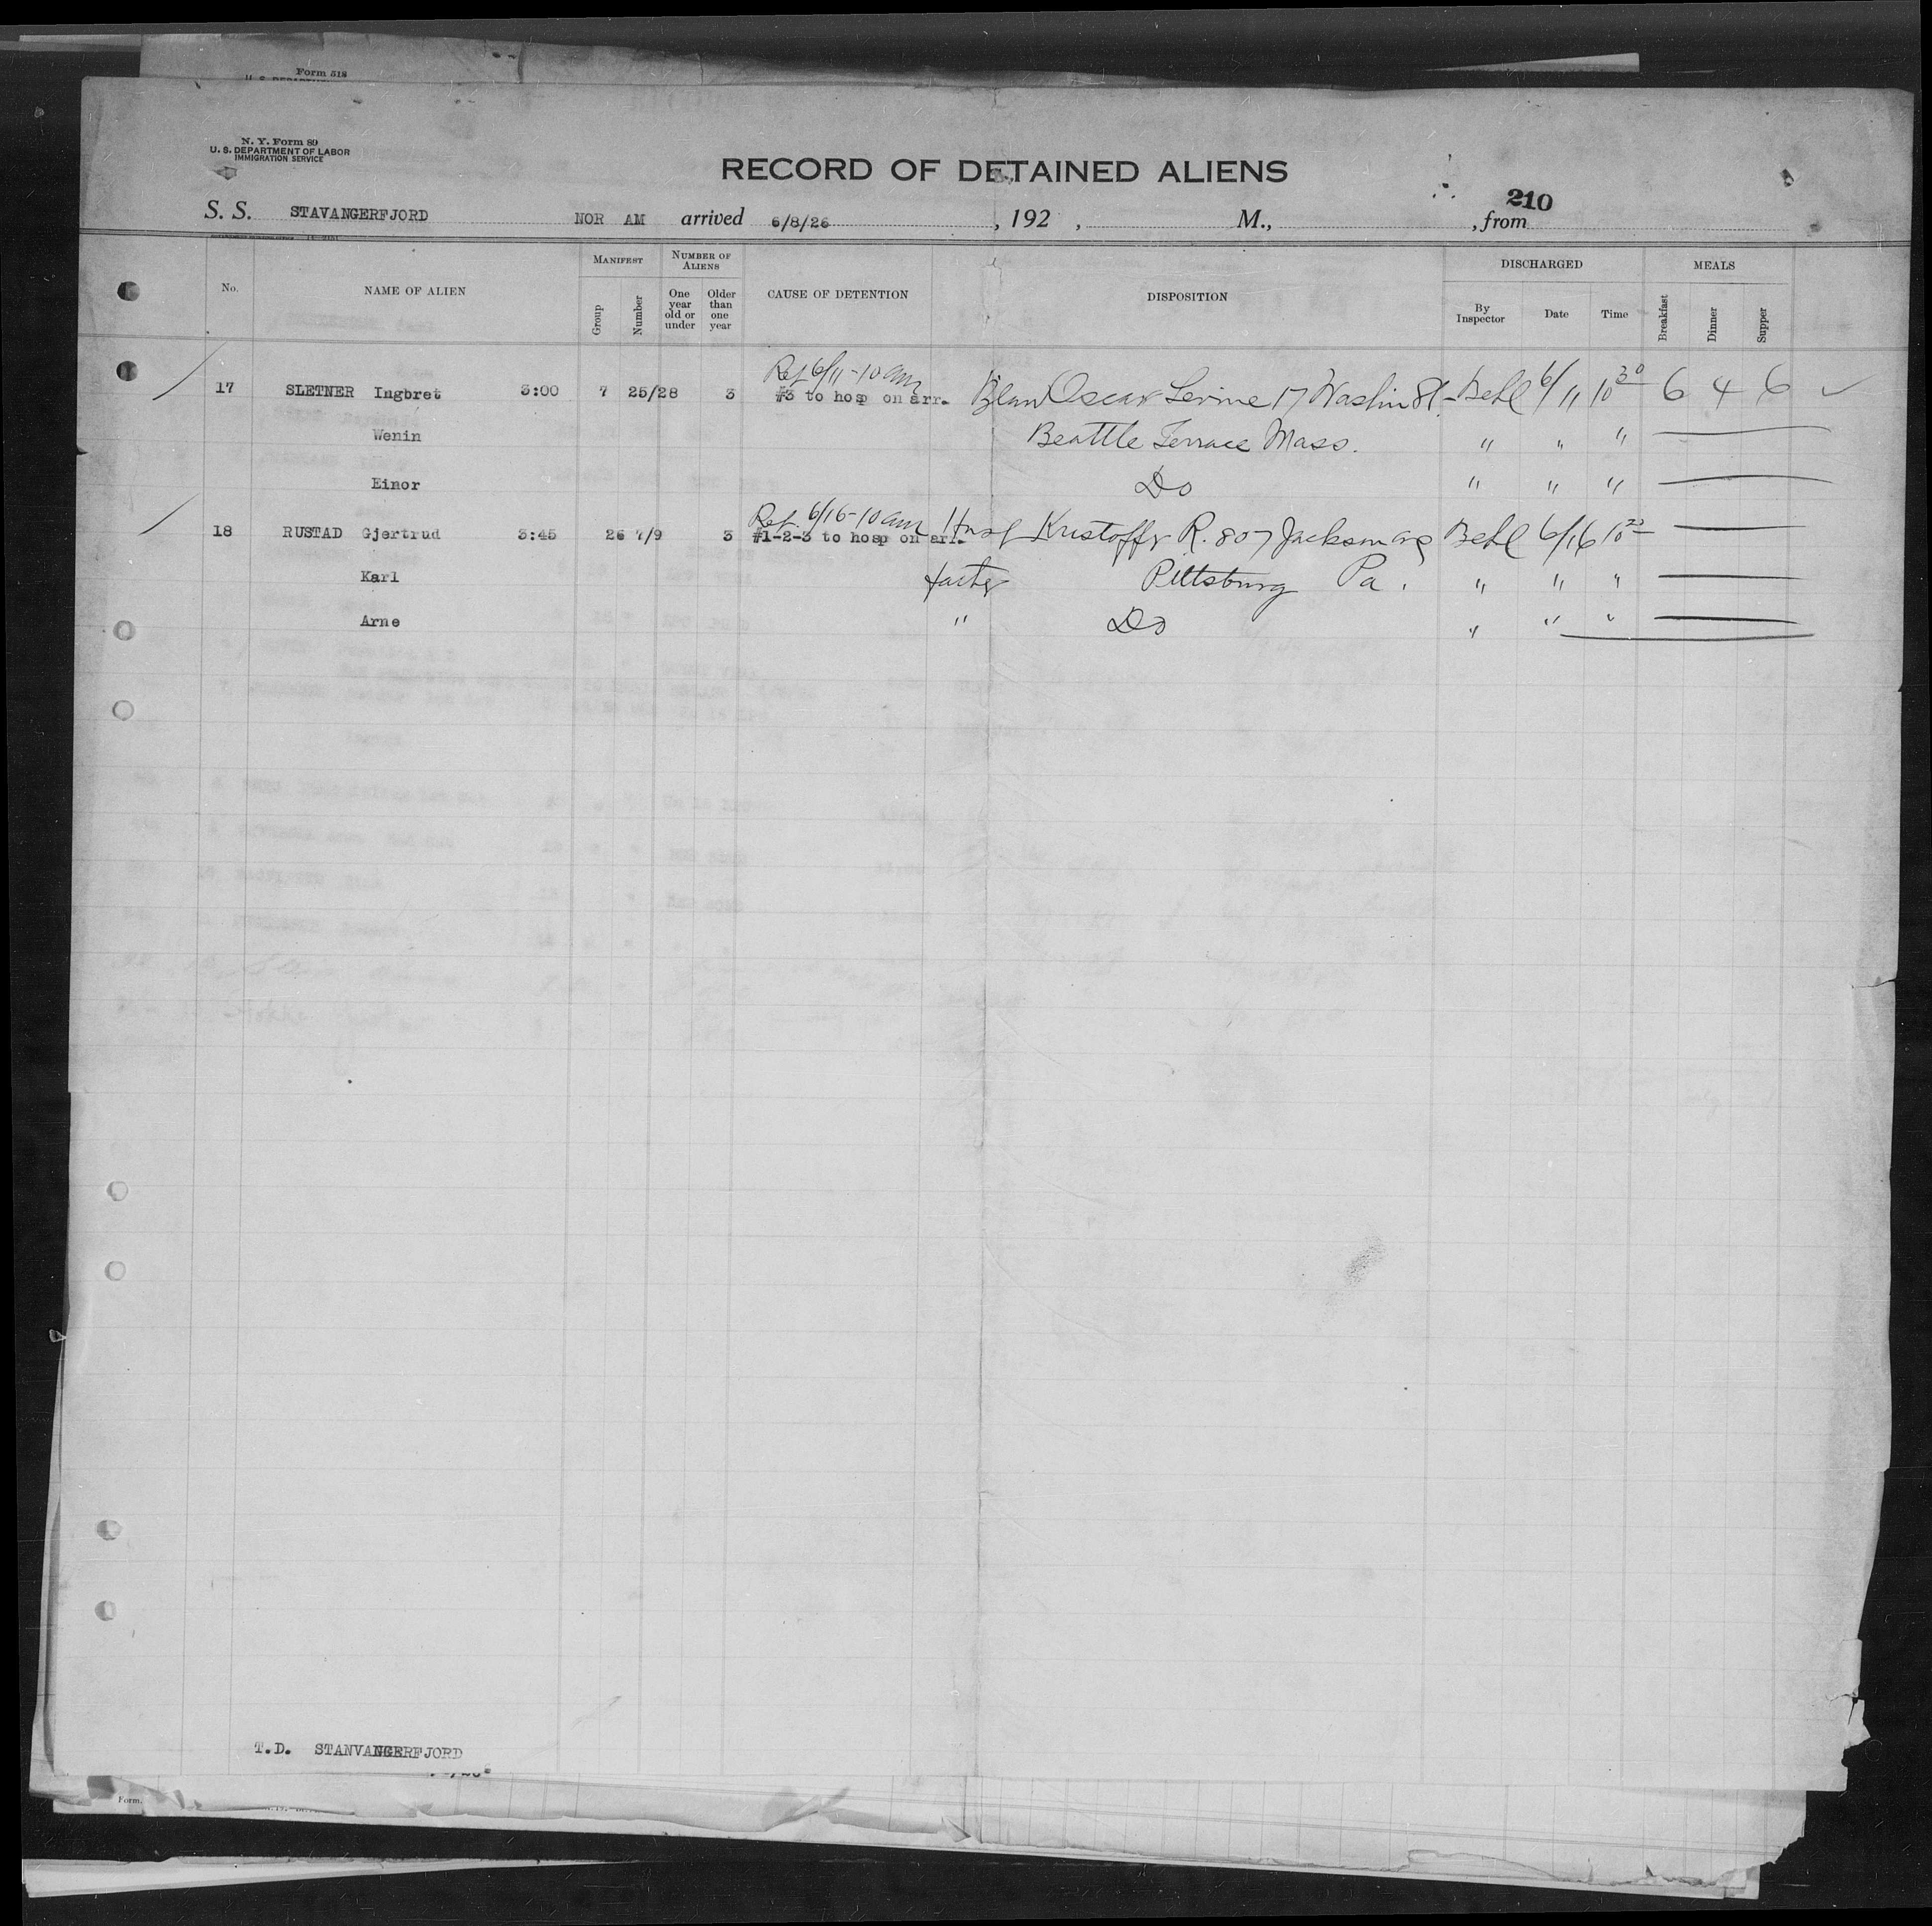 Form 518
N. Y. Form 89
U. S. DEPARTMENT OF LABOR
IMMIGRATION SERVICE
RECORD OF DETAINED ALIENS
210
S. S. STAVANGERFJORD NOR AM arrived 6/8/26 , 192 , M., , from
No. NAME OF ALIEN MANIFEST Group Number NUMBER OF ALIENS One year old or under Older than one year CAUSE OF DETENTION DISPOSITION DISCHARGED By Inspector Date Time MEALS Breakfast Dinner Supper
Ret 6/11-10 am
17 SLETNER Ingbret 3:00 7 25/28 3 #3 to hosp on arr. Oscar 17 Washin St - 6/11 10 30 6 4 6
Wenin Terrace Mass. " " "
Einor Do " " "
Ret. 6/16-10 am
18 RUSTAD Gjertrud 3:45 26 7/9 3 #1-2-3 to hosp on arr. Husb Kristoffr R. 807 Jackson 6/16 10
Karl Pittsburg Pa. " " "
Arne " Do " " "
T.D. STANVANGERFJORD
Form.